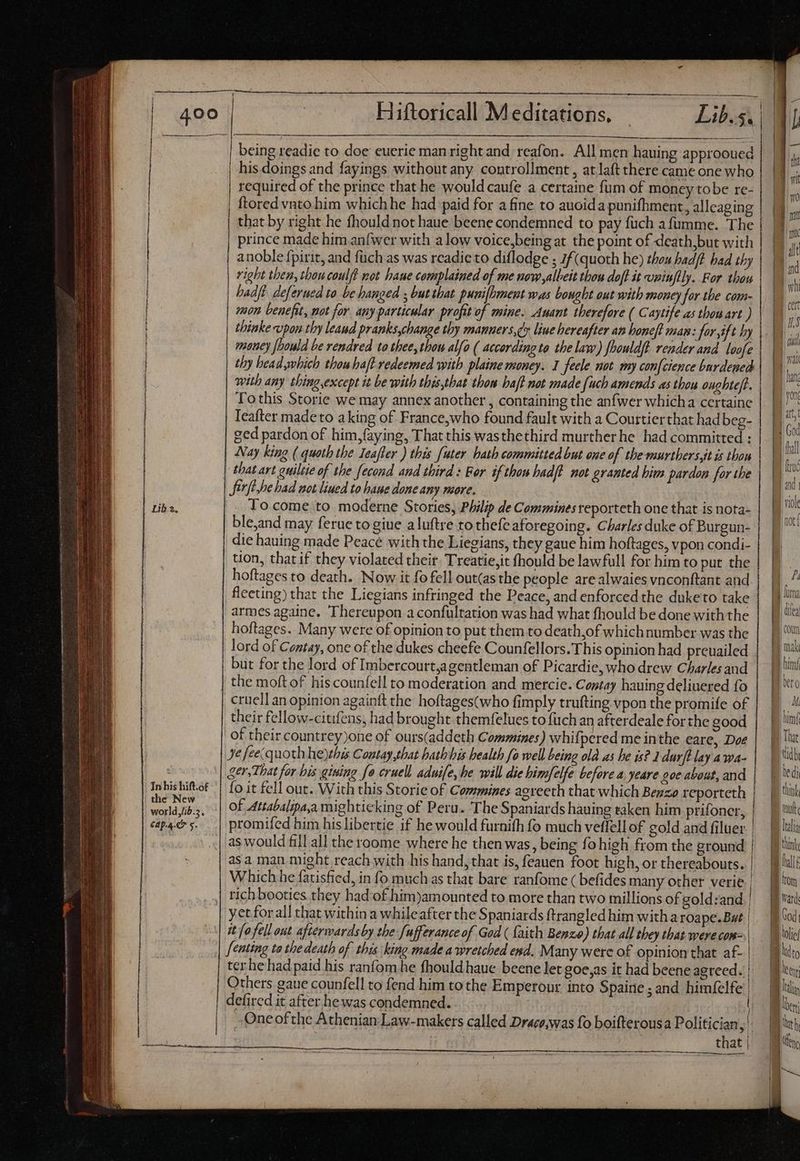 400
Historicall Meditations,
Lib.5.
being readie to doe euerie man right and reason. All men hauing approoued
his doings and sayings without any controllment, at last there came one who
required of the prince that he would cause a certaine sum of money to be re-
stored vnto him which he had paid for a fine to auoid a punishment, alleaging
that by right he should not haue beene condemned to pay such a summe. The
prince made him answer with a low voice, being at the point of death, but with
a noble spirit, and such as was readie to dislodge ; If (quoth he) thou hadst had thy
right then, thou couldst not haue complained of me now, albeit thou dost it vniustly. For thou
hadst deserued to be hanged ; but that punishment was bought out with money for the com-
mon benefit, not for any particular profit of mine. Auant therefore ( Caytife as thou art )
thinke vpon thy leawd pranks, change thy manners, & liue hereafter an honest man: for, ist thy
money should be rendred to thee, thou also ( according to the law) shouldst render and loose
thy head, which thou hast redeemed with plaine money. I feele not my conscience burdened
with any thing, except it be with this, that thou hast not made such amends as thou oughtest.
To this Storie we may annex another, containing the answer which a certaine
Ieaster made to a king of France, who found fault with a Courtier that had beg-
ged pardon of him, saying, That this was the third murther he had committed :
Nay king ( quoth the Ieaster ) this suter hath committed but one of the murthers, it is thou
that art guiltie of the second and third : For if thou hadst not granted him pardon for the
first, he had not liued to haue done any more.
Lib 2.
To come to moderne Stories, Philip de Commines reporteth one that is nota-
ble, and may serue to giue a lustre to these aforegoing. Charles duke of Burgun-
die hauing made Peace with the Liegians, they gaue him hostages, vpon condi-
tion, that if they violated their Treatie, it should be lawfull for him to put the
hostages to death. Now it so fell out (as the people are alwaies vnconstant and
fleeting) that the Liegians infringed the Peace, and enforced the duke to take
armes againe. Thereupon a consultation was had what should be done with the
hostages. Many were of opinion to put them to death, of which number was the
lord of Contay, one of the dukes cheefe Counsellors. This opinion had preuailed
but for the lord of Imbercourt, a gentleman of Picardie, who drew Charles and
the most of his counsell to moderation and mercie. Contay hauing deliuered so
cruell an opinion against the hostages (who simply trusting vpon the promise of
their fellow-citisens, had brought themselues to such an afterdeale for the good
of their countrey) one of ours (addeth Commines) whispered me in the eare, Doe
ye see (quoth he) this Contay, that hath his health so well being old as he is? I durst lay a wa-
ger, That for his giuing so cruell aduise, he will die himselfe before a yeare goe about, and
In his hist. of
the New
world, lib.3.
cap.4.& 5.
so it fell out. With this Storie of Commines agreeth that which Benzo reporteth
of Attabalipa, a mightie king of Peru. The Spaniards hauing taken him prisoner,
promised him his libertie if he would furnish so much vessell of gold and siluer
as would fill all the roome where he then was, being so high from the ground
as a man might reach with his hand, that is, seauen foot high, or thereabouts.
Which he satisfied, in so much as that bare ransome ( besides many other verie
rich booties they had of him) amounted to more than two millions of gold: and
yet for all that within a while after the Spaniards strangled him with a roape. But
it so fell out afterwards by the sufferance of God ( saith Benzo) that all they that were con-
senting to the death of this king made a wretched end. Many were of opinion that af-
ter he had paid his ransom he should haue beene let goe, as it had beene agreed.
Others gaue counsell to send him to the Emperour into Spaine ; and himselfe
desired it after he was condemned.
One of the Athenian Law-makers called Draco, was so boisterous a Politician,
that